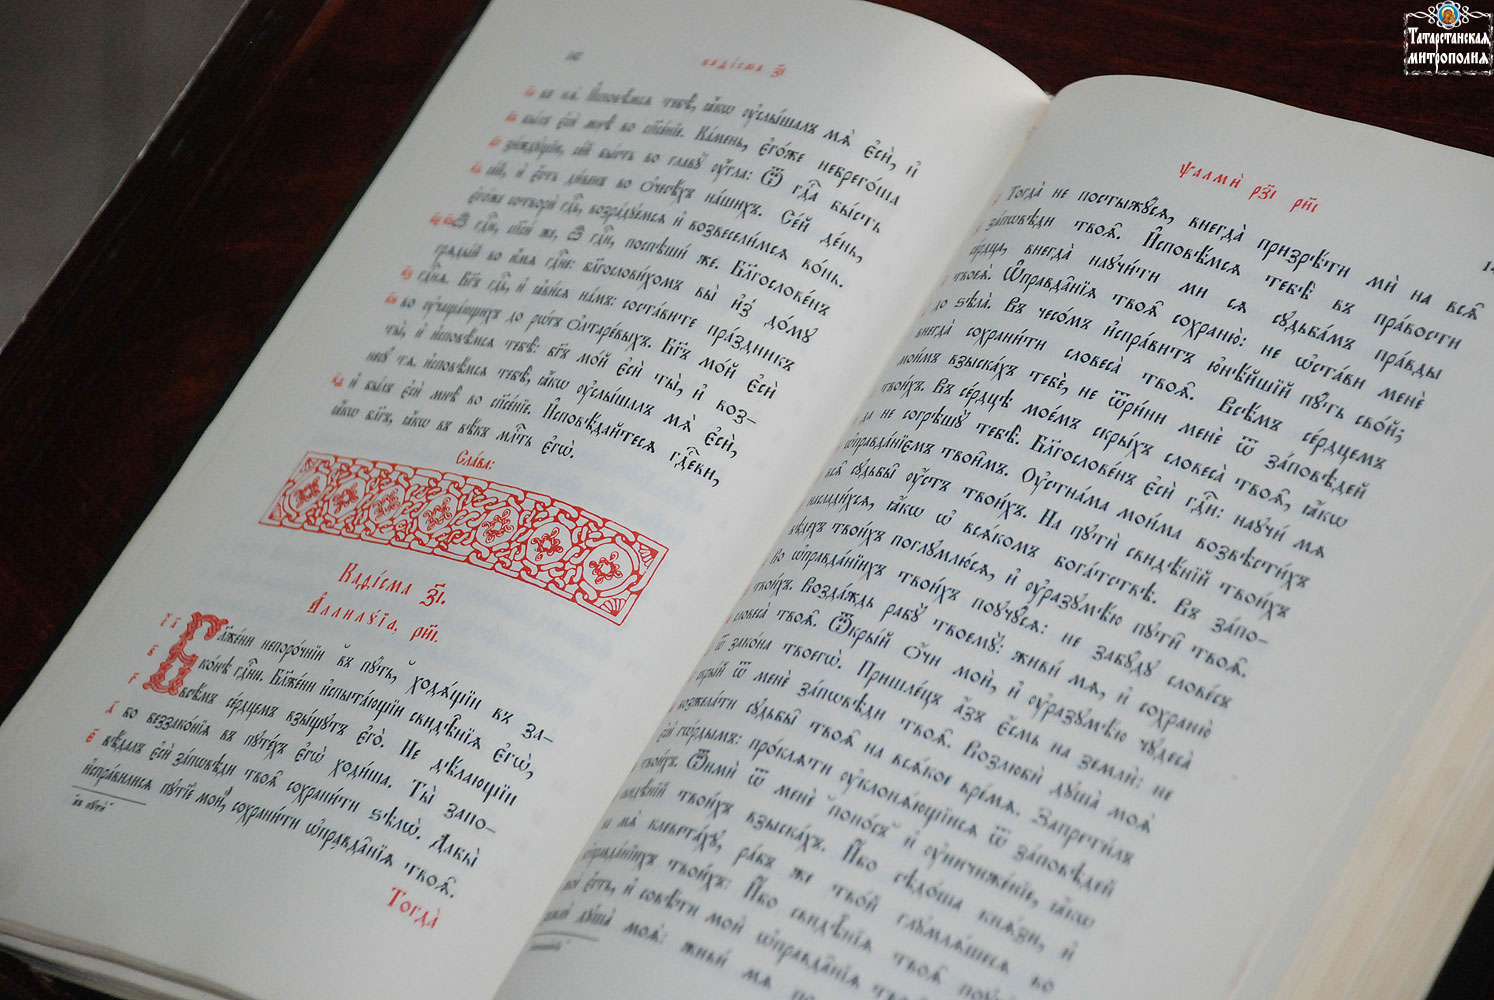 каѳісма з҃і
на мѧ̀. И҆сповѣ́мсѧ тебѣ̀, ꙗ҆́кѡ ᲂу҆слы́шалъ мѧ̀ є҆сѝ, и҆
бы́лъ є҆сѝ мнѣ̀ во сп҃се́нїе. Ка́мень, є҆го́же небрего́ша
зи́ждꙋщїи, се́й бы́сть во главꙋ̀ ᲂу҆́гла: Ѿ гдⷭ҇а бы́сть
се́й, и҆ є҆́сть ди́венъ во ѻ҆чесѣ́хъ на́шихъ. Се́й де́нь,
є҆го́же сотворѝ гдⷭ҇ь, возра́дꙋемсѧ и҆ возвесели́мсѧ во́нь.
Ѽ гдⷭ҇и, сп҃си́ же, ѽ гдⷭ҇и, поспѣши́ же. Блгⷭ҇ове́нъ
грѧды́й во и҆́мѧ гдⷭ҇не: блгⷭ҇ови́хомъ вы̀ и҆з̾ до́мꙋ
гдⷭ҇нѧ. Бг҃ъ гдⷭ҇ь, и҆ ꙗ҆ви́сѧ на́мъ: соста́вите пра́здникъ
во ᲂу҆чаща́ющихъ до ро́гъ ѻ҆лтаре́выхъ. Бг҃ъ мо́й є҆сѝ
ты̀, и҆ и҆сповѣ́мсѧ тебѣ̀: бг҃ъ мо́й є҆сѝ ты̀, и҆ воз-
несꙋ́ тѧ. и҆сповѣ́мсѧ тебѣ̀, ꙗ҆́кѡ ᲂу҆слы́шалъ мѧ̀ є҆сѝ,
и҆ бы́лъ є҆сѝ мнѣ̀ во сп҃се́нїе. И҆сповѣ́дайтесѧ гдⷭ҇еви,
ꙗ҆́кѡ бл҃гъ, ꙗ҆́кѡ въ вѣ́къ млⷭ҇ть є҆гѡ̀.
Сла́ва:
Каѳі́сма з҃і.
А҆ллилꙋ́їа, рн҃і.
Бл҃же́ни непоро́чнїи въ пꙋ́ть, ходѧ́щїи въ за-
ко́нѣ гдⷭ҇ни. Бл҃же́ни и҆спыта́ющїи свидѣ̑нїѧ є҆гѡ̀,
всѣ́мъ се́рдцемъ взы́щꙋтъ є҆го̀. Не дѣ́лающїи
бо беззако́нїѧ въ пꙋте́хъ є҆гѡ̀ ходи́ша. Ты̀ запо-
вѣ́далъ є҆сѝ за́пѡвѣди твоѧ̑ сохрани́ти ѕѣлѡ̀. Дабы̀
и҆спра́вилисѧ пꙋтїѐ моѝ, сохрани́ти ѡ҆правда̑нїѧ твоѧ̑.
Тогда̀
ѱалмы̀ рз҃і рн҃і
Тогда̀ не постыжꙋ́сѧ, внегда̀ призрѣ́ти мѝ на всѧ̑
за́пѡвѣди твоѧ̑. И҆сповѣ́мсѧ тебѣ̀ въ пра́вости
се́рдца, внегда̀ наꙋчи́ти ми сѧ сꙋдьба́мъ пра́вды
твоеѧ̀. Ѡ҆правда̑нїѧ твоѧ̑ сохраню̀: не ѡ҆ста́ви менѐ
до ѕѣла̀. Въ чесо́мъ и҆спра́витъ ю҆нѣ́йшїй пꙋ́ть сво́й;
внегда̀ сохрани́ти словеса̀ твоѧ̑. Всѣ́мъ се́рдцемъ
мои́мъ взыска́хъ тебѐ, не ѿри́ни менѐ ѿ за́повѣдей
твои́хъ. Въ се́рдцѣ мое́мъ скры́хъ словеса̀ твоѧ̑, ꙗ҆́кѡ
да не согрѣшꙋ̀ тебѣ̀. Блгⷭ҇ове́нъ є҆сѝ гдⷭ҇и: наꙋчи́ мѧ
ѡ҆правда́нїємъ твои̑мъ. Оу҆стна́ма мои́ма возвѣсти́хъ
всѧ̑ сꙋдьбы̑ ᲂу҆́стъ твои́хъ. На пꙋтѝ свидѣ́нїй твои́хъ
наслади́хсѧ, ꙗ҆́кѡ ѡ҆ всѧ́комъ бога́тствѣ. Въ за́по-
вѣдехъ твои́хъ поглꙋмлю́сѧ, и҆ ᲂу҆разꙋмѣ́ю пꙋти̑ твоѧ̑.
Во ѡ҆правда́нїихъ твои́хъ поꙋчꙋ́сѧ: не забꙋ́дꙋ слове́съ
твои́хъ. Возда́ждь рабꙋ̀ твоемꙋ̀: живи́ мѧ, и҆ сохраню̀
словеса̀ твоѧ̑. Ѿкры́й ѻ҆́чи моѝ, и҆ ᲂу҆разꙋмѣ́ю чꙋдеса̀
ѿ зако́на твоегѡ̀. Пришле́цъ а҆́зъ є҆́смь на землѝ: не
скры́й ѿ менѐ за́пѡвѣди твоѧ̑. Возлюбѝ дꙋша̀ моѧ̀
возжела́ти сꙋдьбы̑ твоѧ̑ на всѧ́кое вре́мѧ. Запрети́лъ
є҆сѝ гѡ́рдымъ: про́клѧти ᲂу҆клонѧ́ющїисѧ ѿ за́повѣдей
твои́хъ. Ѿимѝ ѿ менѐ поно́съ и҆ ᲂу҆ничиже́нїе, ꙗ҆́кѡ
свидѣ́нїй твои́хъ взыска́хъ. И҆́бо сѣдо́ша кнѧ̑зи, и҆
на мѧ̀ клевета́хꙋ, ра́бъ же тво́й глꙋмлѧ́шесѧ во
ѡ҆правда́нїихъ твои́хъ: И҆́бо свидѣ̑нїѧ твоѧ̑
є҆́сть, и҆ совѣ́ти моѝ ѡ҆правда̑нїѧ
дꙋша̀ моѧ̀: живи́ мѧ
Татарстанская
митрополия